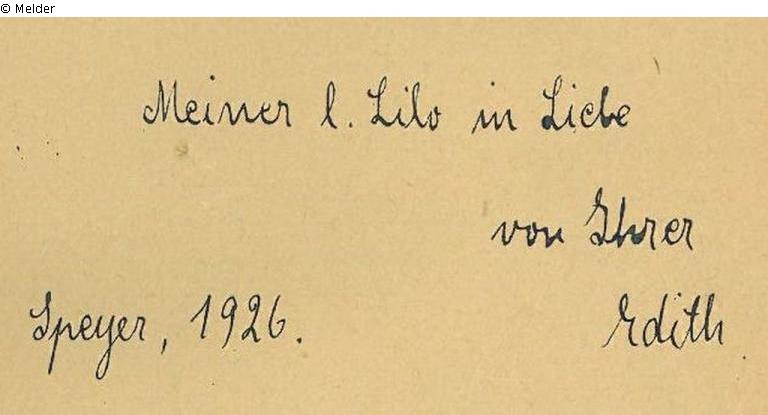 © Melder
Meiner l. Lilo in Liebe
von Ihrer
Speyer, 1926. Edith